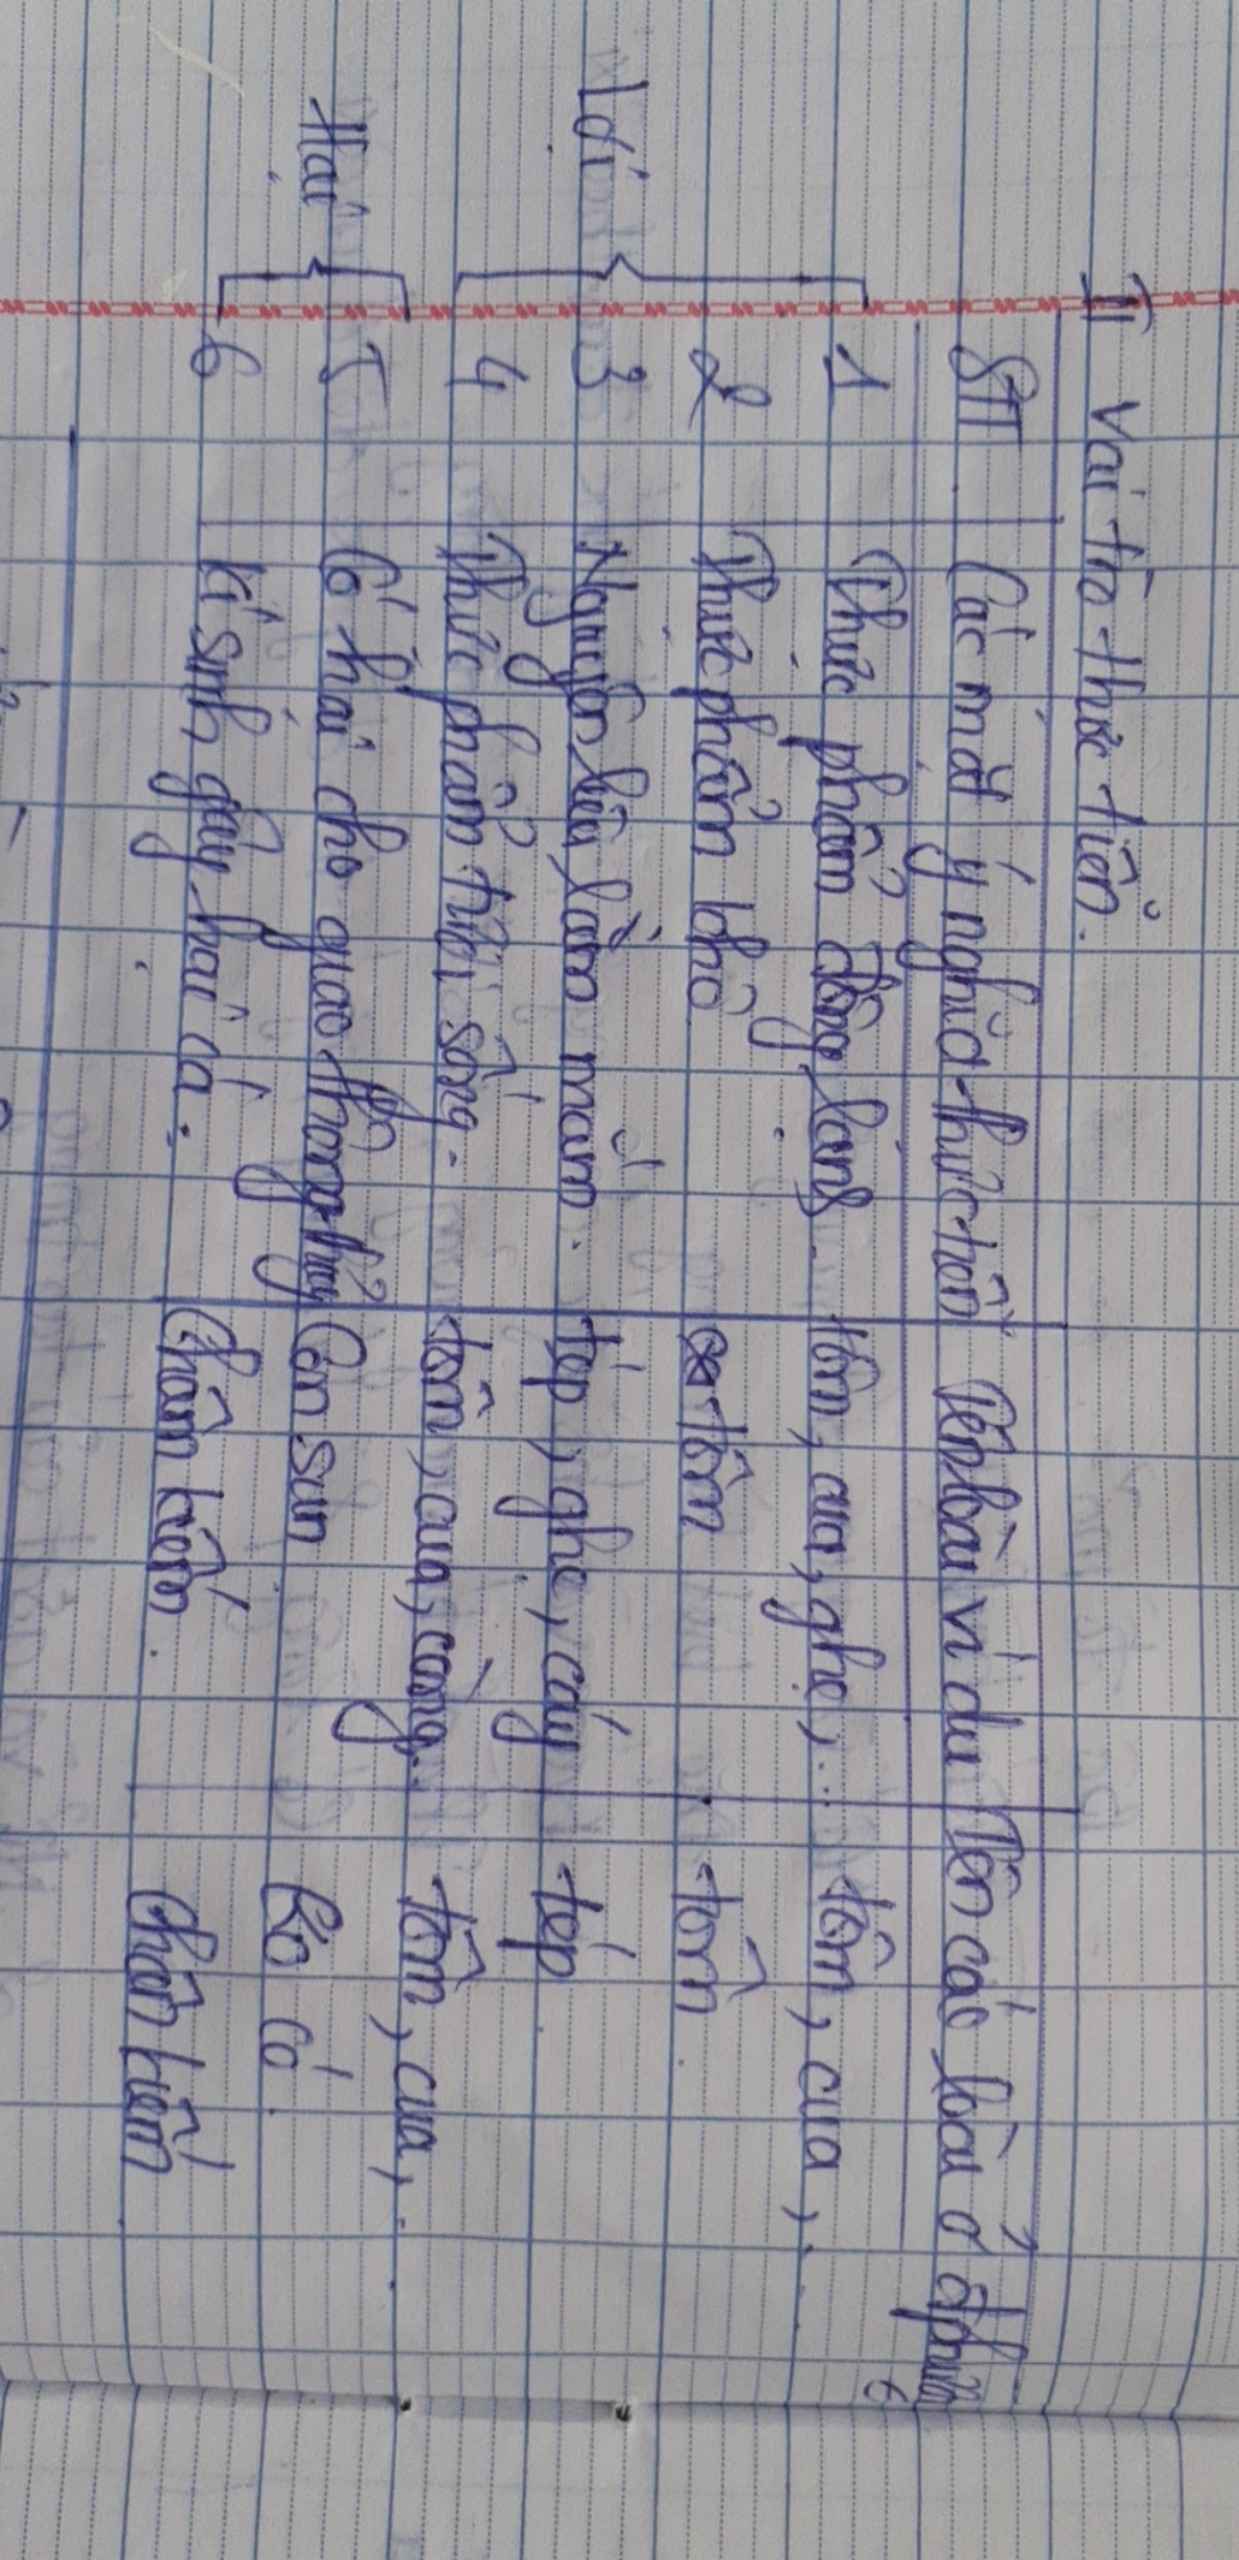 II Vai trò thực tiễn.
STT Các mặt ý nghĩa thực tiễn Tên loài ví dụ Tên các loài ở
Lợi
1 Thực phẩm đông lạnh tôm, cua, ghẹ,... tôm, cua,
2 Thực phẩm khô tôm tôm
3 Nguyên liệu làm mắm. tép, ghẹ, cáy tép
4 Thực phẩm tươi sống. tôm, cua, còng. tôm, cua,
Hại
5 Có hại cho giao thông thủy Con sun Ko có
6 Kí sinh gây hại cá. Chân kiếm. Chân kiếm